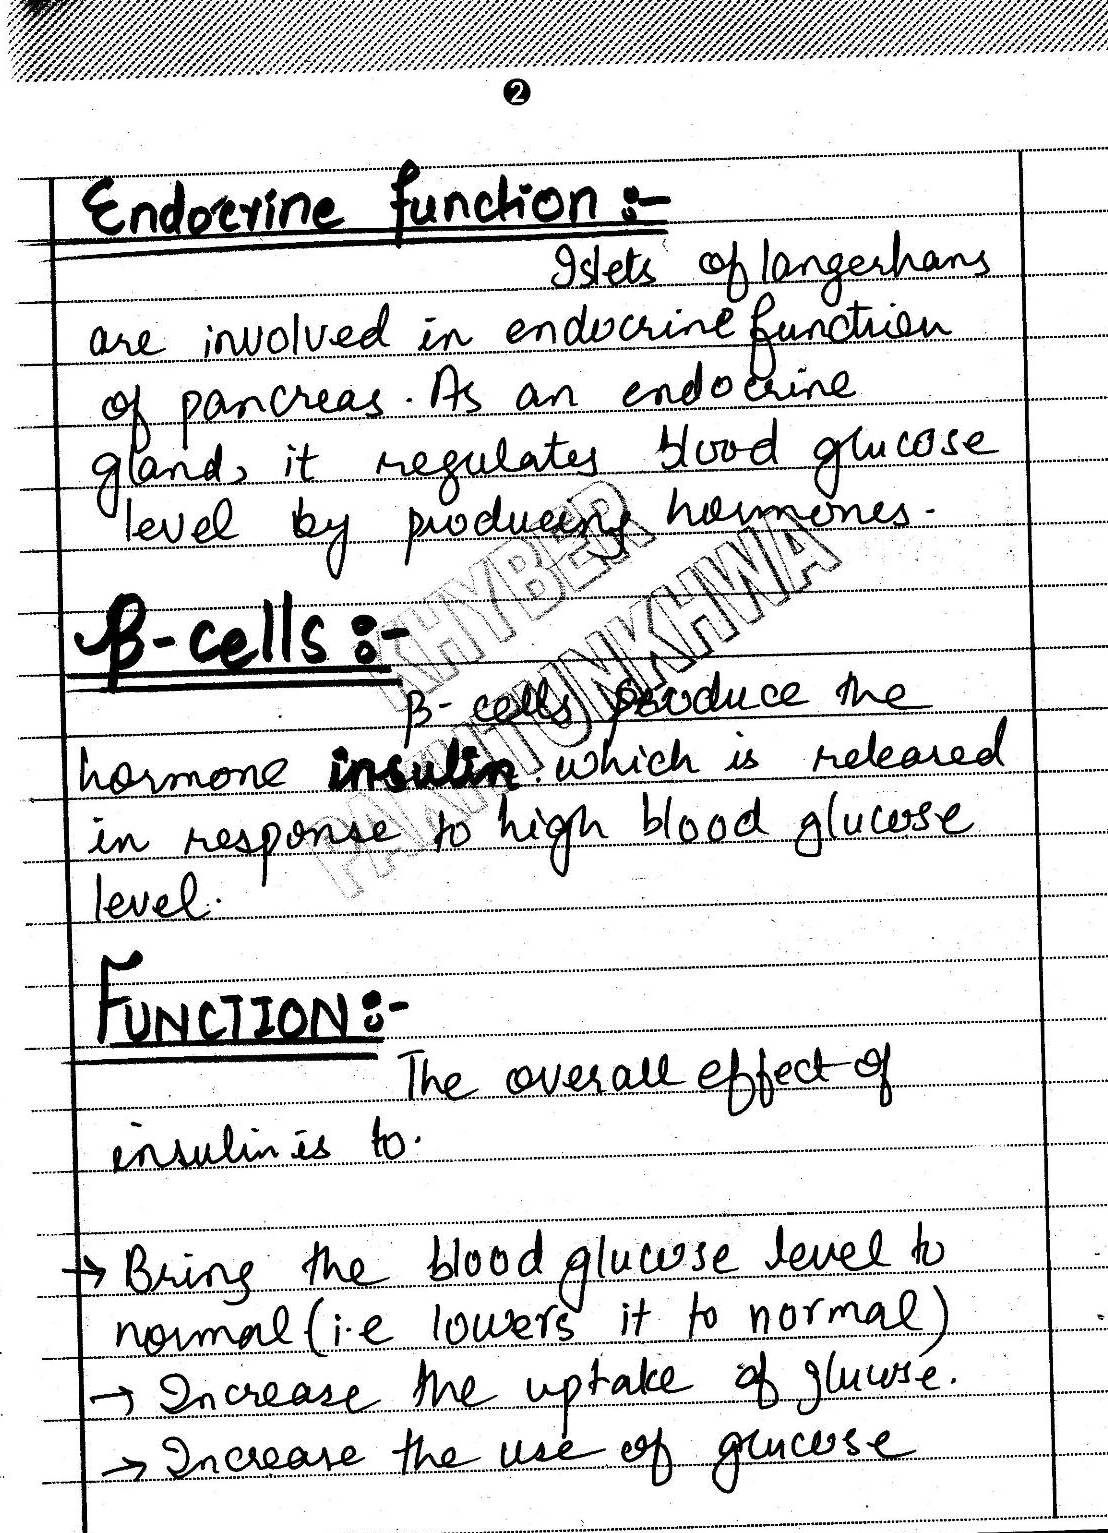 2
Endocrine function :-
Islets of langerhans
are involved in endocrine function
of pancreas. As an endocrine
gland, it regulates blood glucose
level by producing hormones.
KHYBER
PAKHTUNKHWA
β-cells :-
β-cells produce the
hormone insulin. which is released
in response to high blood glucose
level.
FUNCTION :-
The overall effect of
insulin is to.
→ Bring the blood glucose level to
normal (i.e lowers it to normal)
→ Increase the uptake of glucose.
→ Increase the use of glucose